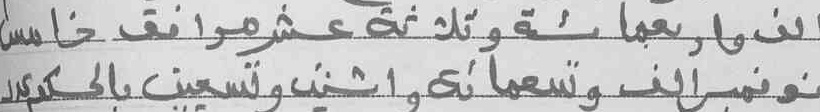 الف واربعمائة وثلاثة عشر موافق خامس
نونمبر الف وتسعمائة واثنين وتسعين بالحكم عدد